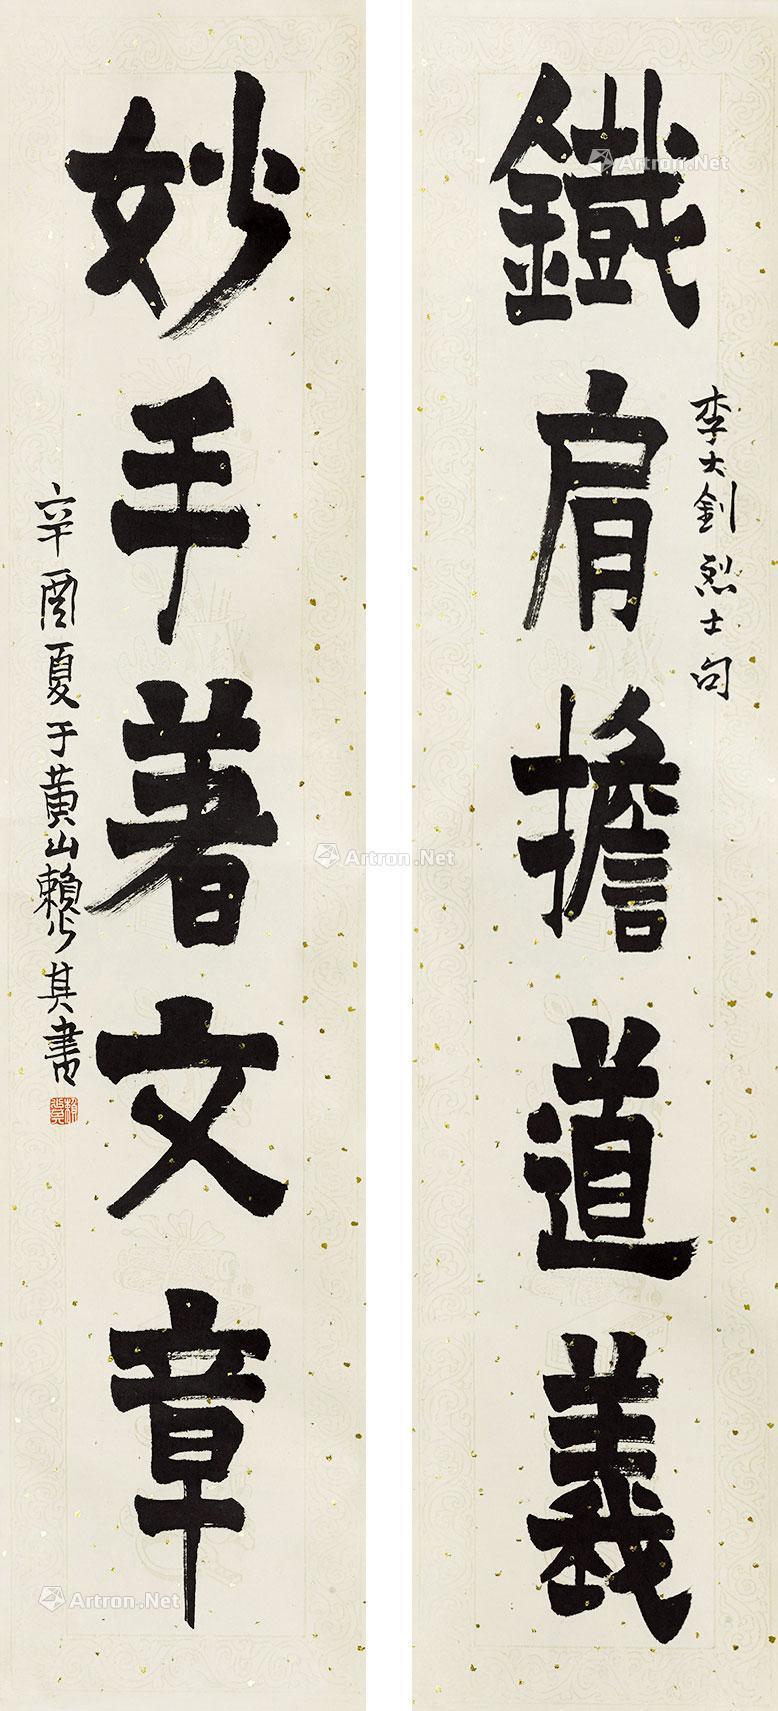 鐵肩擔道義
李大釗烈士句
妙手著文章
辛酉夏于黄山賴少其書
Artron.Net
Artron.Net
Artron.Net